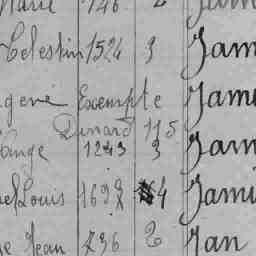 Marie 146 2 Jam
Celestin 1524 3 Jam
Exempte Jam
Dinard 115
Lange 1243 3 Jam
Louis 1692 4 Jami
Jean 736 2 Jan